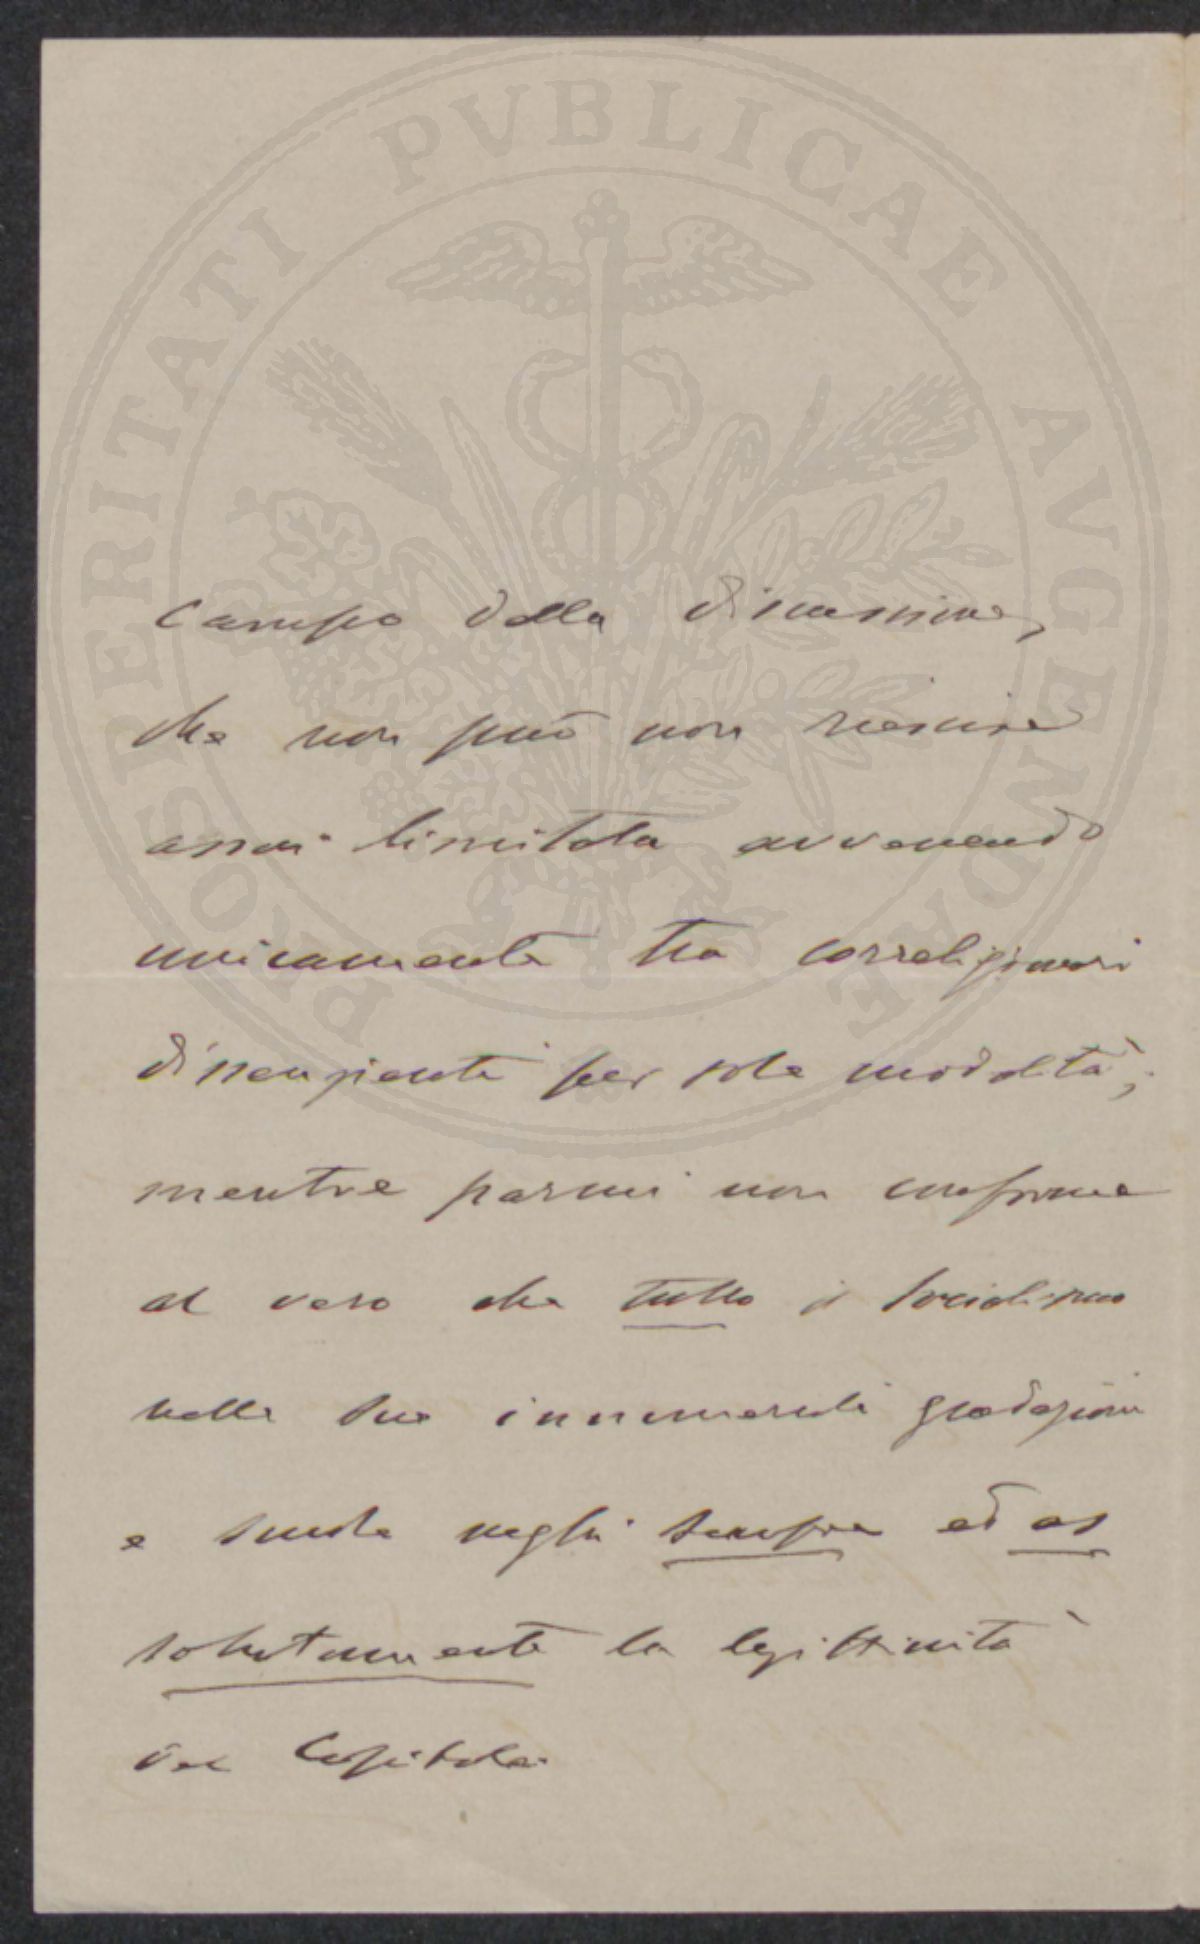 PROSPERITATI PVBLICAE AVGENDAE
campo della discussione,
che non può non riescire
assai limitata avvenendo
unicamente tra correligionari
dissenzienti per sole modalità;
mentre parmi non conforme
al vero che tutto il socialismo
nelle sue innumerevoli gradazioni
e scuole neghi sempre ed as
solutamente la legittimità
del Capitale.